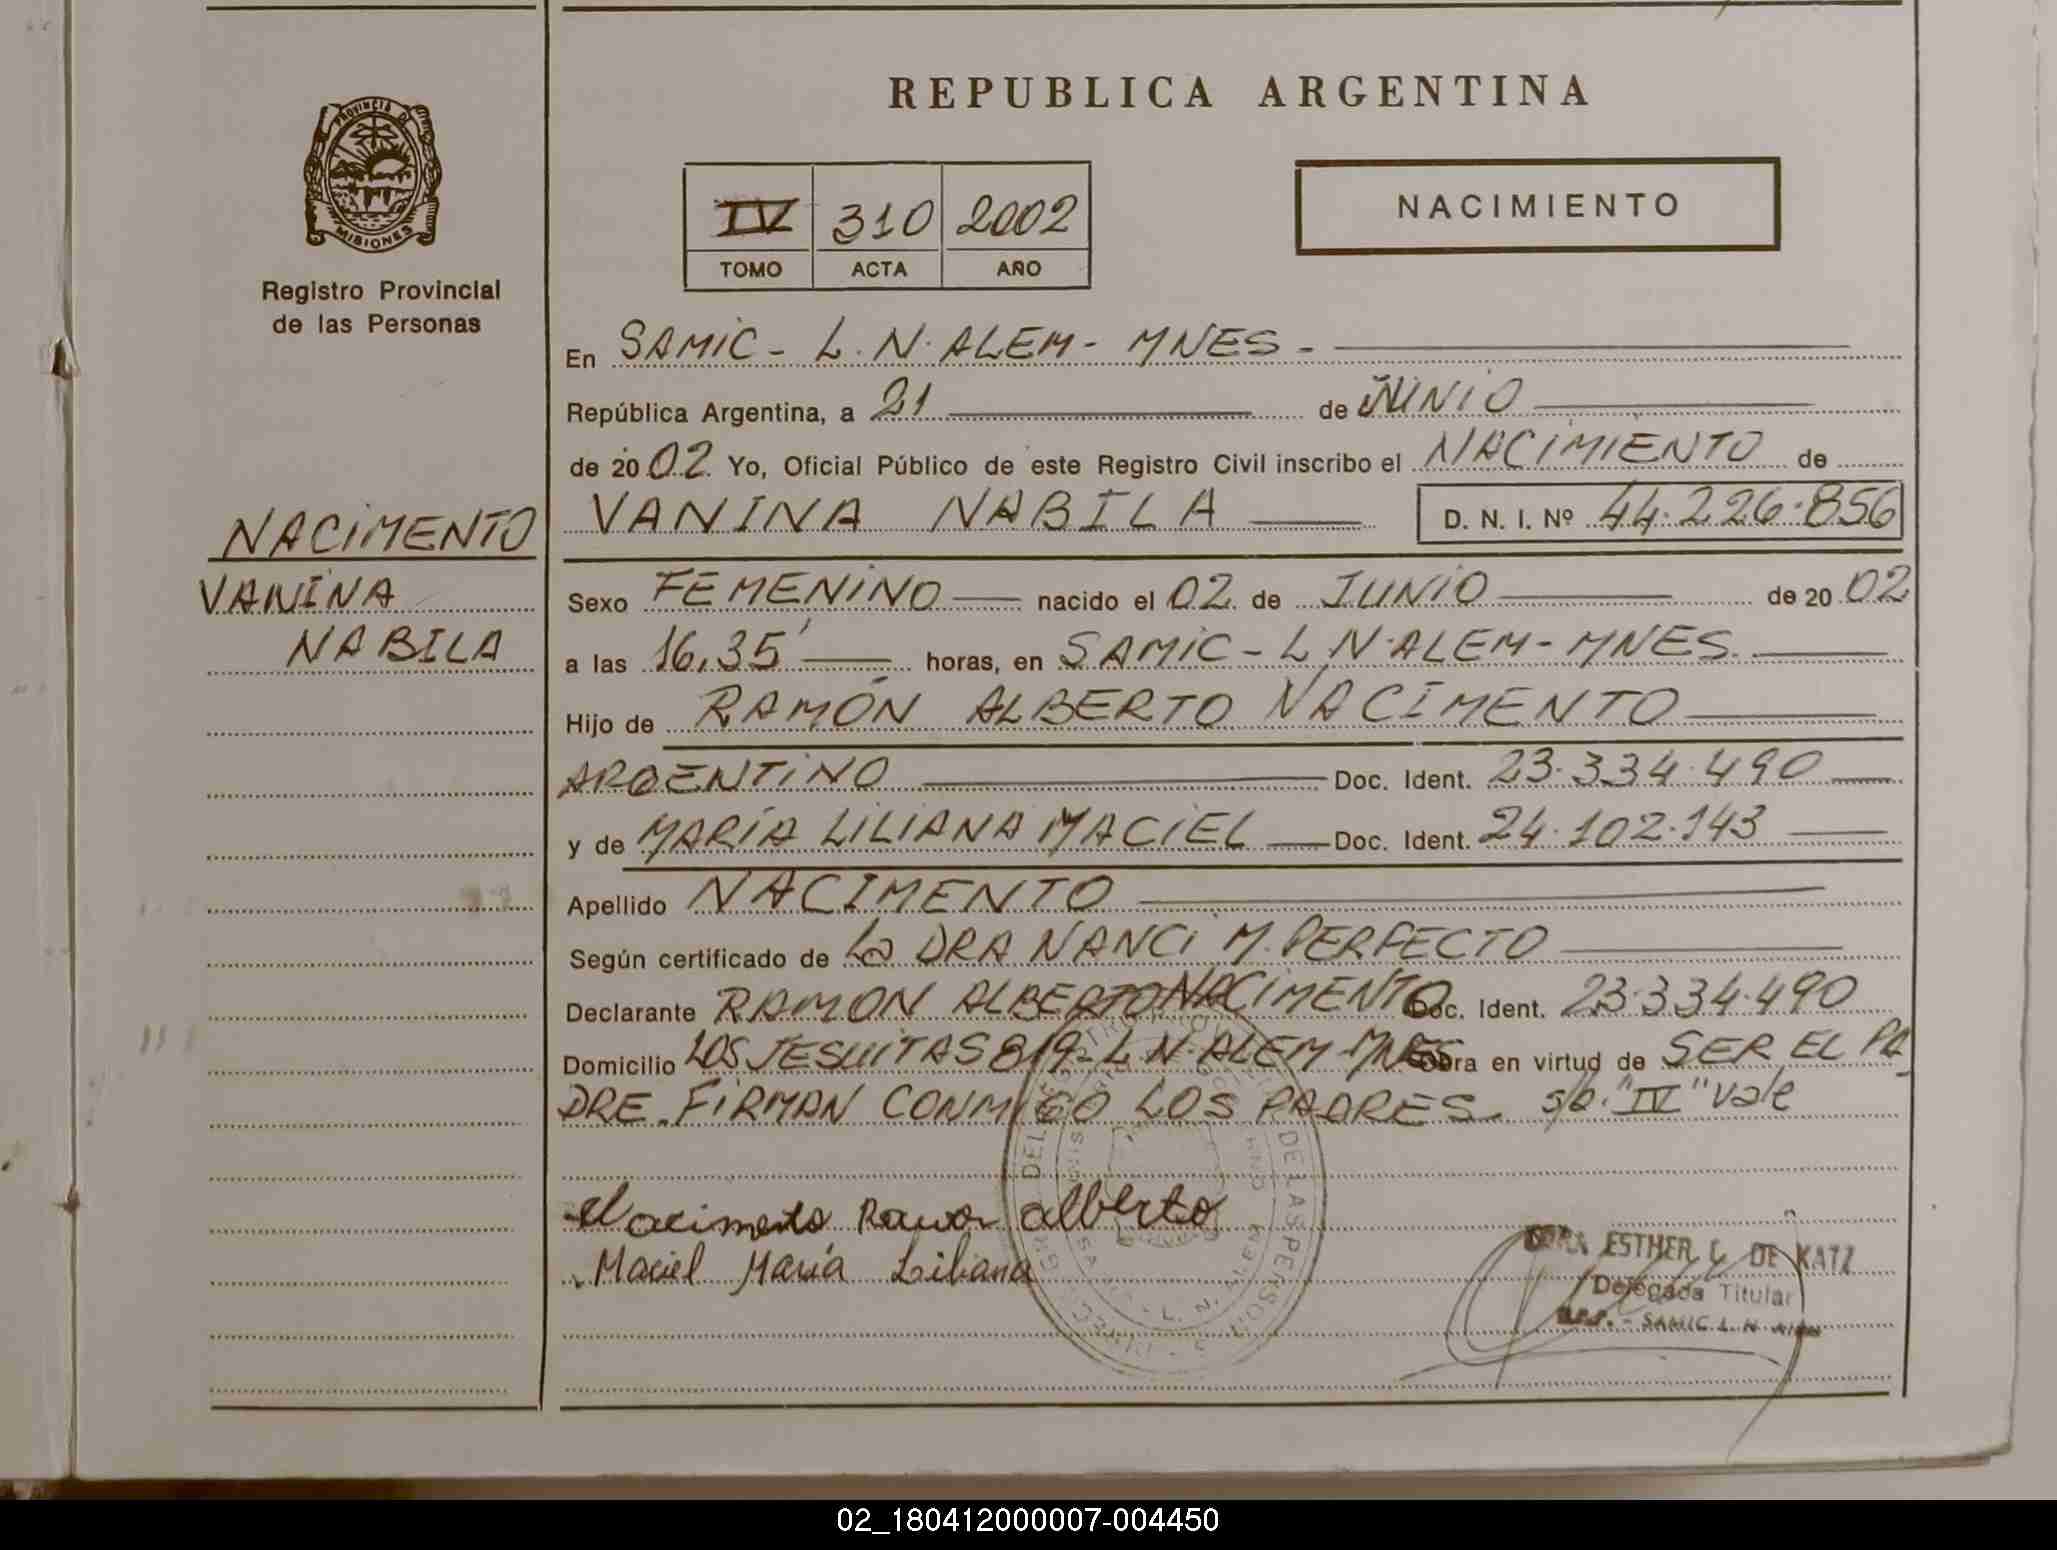 REPUBLICA ARGENTINA
PROVINCIA DE
MISIONES
Registro Provincial
de las Personas
IV 310 2002
TOMO ACTA AÑO
NACIMIENTO
En SAMIC - L. N. ALEM - MNES -
República Argentina, a 21 de JUNIO
de 2002 Yo, Oficial Público de este Registro Civil inscribo el NACIMIENTO de
VANINA NABILA D. N. I. Nº 44.226.856
NACIMENTO
VANINA
NABILA
Sexo FEMENINO nacido el 02 de JUNIO de 2002
a las 16,35' horas, en SAMIC - L N. ALEM - MNES.
Hijo de RAMÓN ALBERTO NACIMENTO
ARGENTINO Doc. Ident. 23.334.490
y de MARÍA LILIANA MACIEL Doc. Ident. 24.102.143
Apellido NACIMENTO
Según certificado de La DRA NANCI M. PERFECTO
Declarante RAMON ALBERTO NACIMENTO Doc. Ident. 23.334.490
Domicilio LOS JESUITAS 819 - L N. ALEM - MNES Obra en virtud de SER EL PA
DRE. FIRMAN CONMIGO LOS PADRES. s/b. "IV" vale
Nacimento Ramon alberto
Maciel María Liliana
ESTHER DE KATZ
Delegada Titular
SAMIC L. N.
DE LAS PERSONAS
L. N. ALEM
02_180412000007-004450